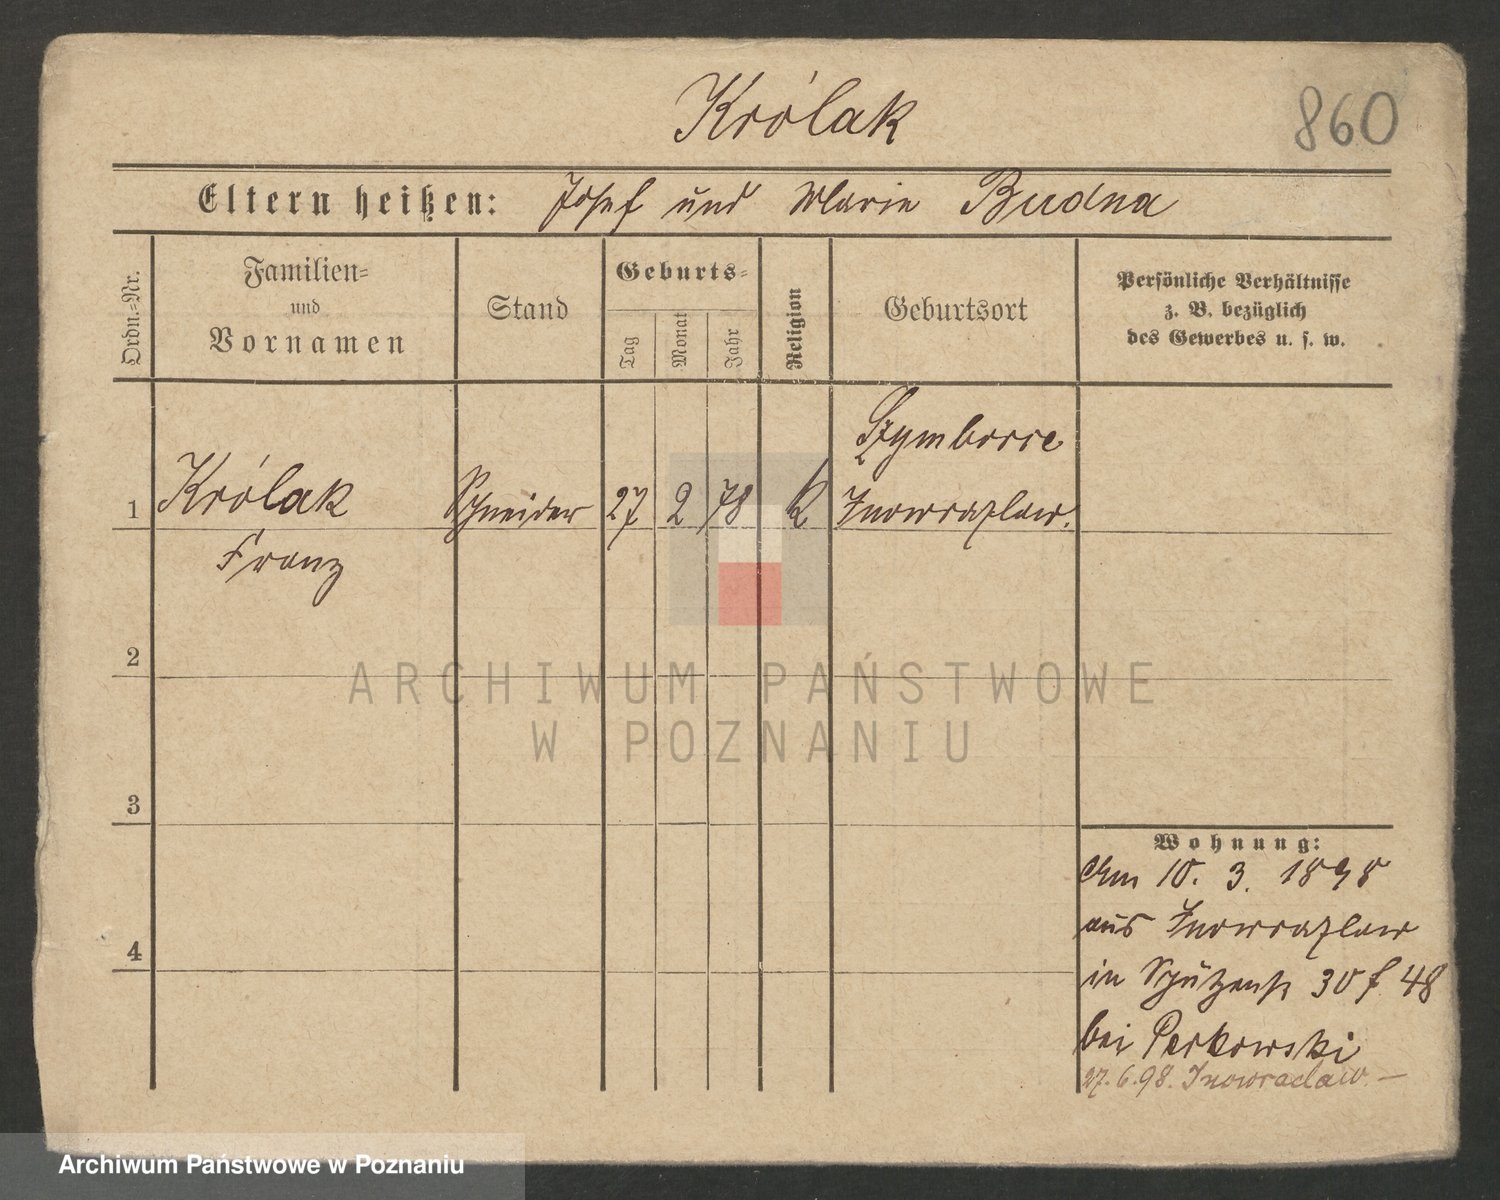 Królak
860
Eltern heißen: Josef und Marie Budna
Ordn.-Nr.
Familien-
und
Vornamen
Stand
Geburts-
Tag
Monat
Jahr
Religion
Geburtsort
Persönliche Verhältnisse
z. B. bezüglich
des Gewerbes u. s. w.
Szymborze
1 Królak Schneider 27 2 78 k Inowrazlaw.
Franz
2
ARCHIWUM PAŃSTWOWE
W POZNANIU
3
Wohnung:
Am 10. 3. 1898
aus Inowrazlaw
4
in Schützenstr 30 f 48
bei Perkowski
27.6.98. Inowraclaw. —
Archiwum Państwowe w Poznaniu